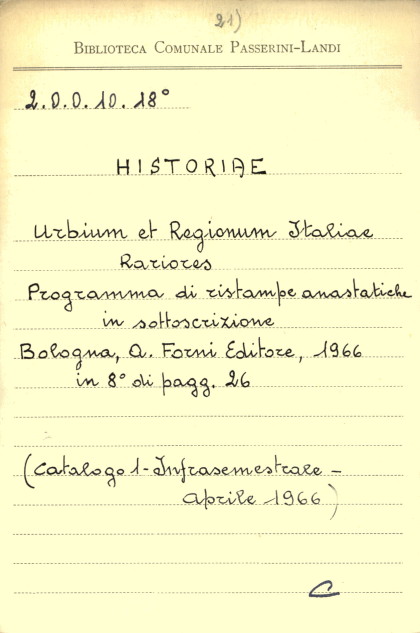 21)
BIBLIOTECA COMUNALE PASSERINI-LANDI
2.0.0.10.18°
HISTORIAE
Urbium et Regionum Italiae
Rariores
Programma di ristampe anastatiche
in sottoscrizione
Bologna, A. Forni Editore, 1966
in 8° di pagg. 26
(Catalogo 1-Infrasemestrale -
aprile 1966)
C